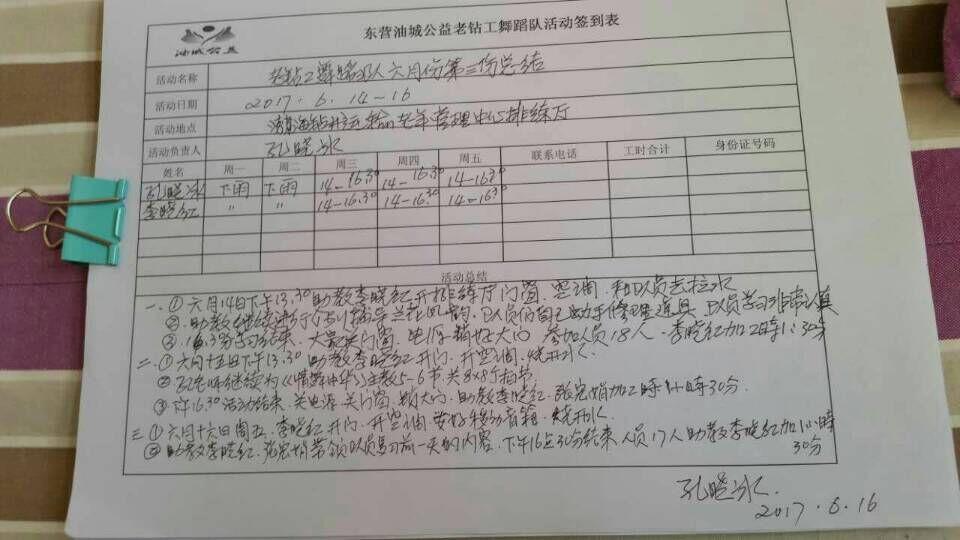 油城公益
东营油城公益老钻工舞蹈队活动签到表
活动名称 老钻工舞蹈队六月份第三份总结
活动日期 2017.6.14-16
活动地点 渤海钻井运输老年管理中心排练厅
活动负责人 孔晓冰
姓名 周一 周二 周三 周四 周五 联系电话 工时合计 身份证号码
孔晓冰 下雨 下雨 14-16.30 14-16.30 14-16.30
李晓红 〃 〃 14-16.30 14-16.30 14-16.30
活动总结
一.①六月14日下午13.30助教李晓红开排练厅门窗.空调.和队员去拉水
②.助教继续进行个别辅导兰花 队员们自己动手修理道具 队员学习非常认真
③.16.30学习结束.大家关门窗.电源.锁好大门 参加人员18人.李晓红加工时1:30分
二.①六月十五日下午13.30助教李晓红开门.开空调.烧开水.
②孔老师继续为《 中华》主教5-6节.共8x8个拍节
③下午16.30活动结束.关电源.关门窗.锁大门.助教李晓红.张宏娟加工时1小时30分.
三①六月十六日周五.李晓红开门.开空调.安好移动音箱.烧开水
②助教李晓红.张宏娟带领队员复习前一天的内容.下午16点30分结束.人员17人助教李晓红加1小时
30分
孔晓冰.
2017.6.16